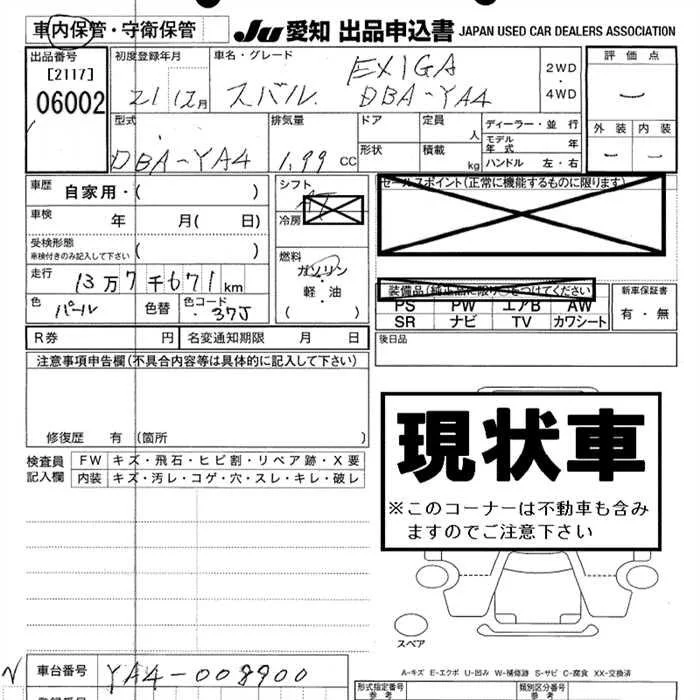 車内保管・守衛保管
JU 愛知 出品申込書 JAPAN USED CAR DEALERS ASSOCIATION
出品番号 [2117] 06002
初度登録年月 21 12月
車名・グレード スバル EXIGA DBA-YA4
2WD・4WD
評価点
外装 内装
型式 DBA-YA4
排気量 1.99 CC
ドア
形状
定員 人
積載 kg
ディーラー・並行
モデル年式 年
ハンドル 左・右
車歴 自家用・( )
シフト AT
セールスポイント(正常に機能するものに限ります)
車検 年 月( 日)
冷房
受検形態 車検付きのみ記入して下さい ( )
燃料 ガソリン・軽・油 ( )
走行 13万7千671km
装備品(純正品に限り○をつけてください
PS PW エアB AW
SR ナビ TV カワシート
新車保証書 有・無
色 パール 色替 色コード・37J
R券 円 名変通知期限 月 日
後日品
注意事項申告欄(不具合内容等は具体的に記入して下さい)
修復歴 有 (箇所 )
現状車
※このコーナーは不動車も含み
ますのでご注意下さい
検査員記入欄
FW キズ・飛石・ヒビ割・リペア跡・X要
内装 キズ・汚レ・コゲ・穴・スレ・キレ・破レ
スペア
車台番号 YA4-008900
A-キズ E-エクボ U-凹み W-補修跡 S-サビ C-腐食 XX-交換済
形式指定番号 参考
類別区分番号 参考